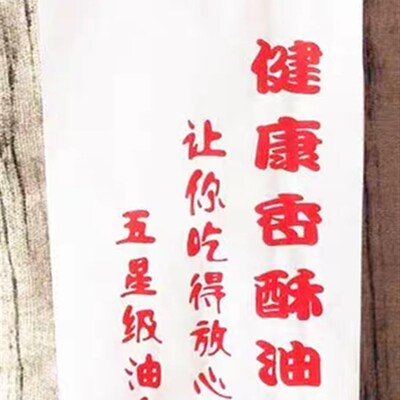 健康香酥油
让你吃得放心
五星级油